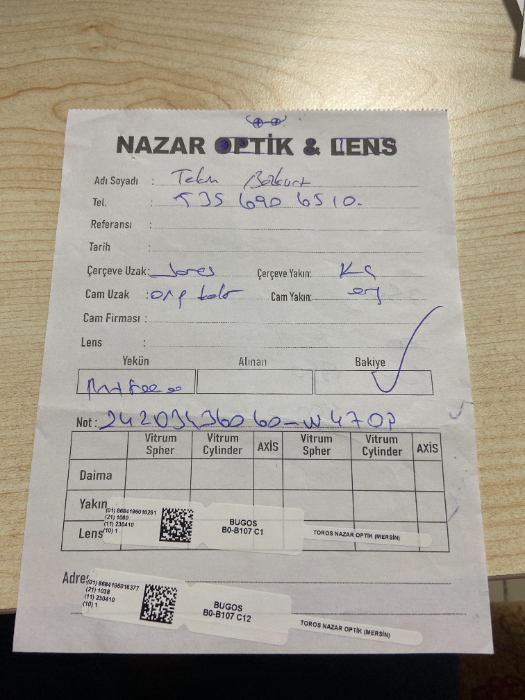 NAZAR OPTİK & LENS
Adı Soyadı : Tekn Bozkurt
Tel. : 535 690 6510.
Referansı :
Tarih :
Çerçeve Uzak: Çerçeve Yakın:
Cam Uzak : Cam Yakın:
Cam Firması :
Lens :
Yekün Alınan Bakiye
Not :
Vitrum Spher Vitrum Cylinder AXİS Vitrum Spher Vitrum Cylinder AXİS
Daima
Yakın
(01) 8684196016291
(21) 1080
(11) 230410
(10) 1
BUGOS
B0-B107 C1
TOROS NAZAR OPTİK (MERSİN)
Lens
Adre
(01) 8684196016377
(21) 1038
(11) 230410
(10) 1
BUGOS
B0-B107 C12
TOROS NAZAR OPTİK (MERSİN)